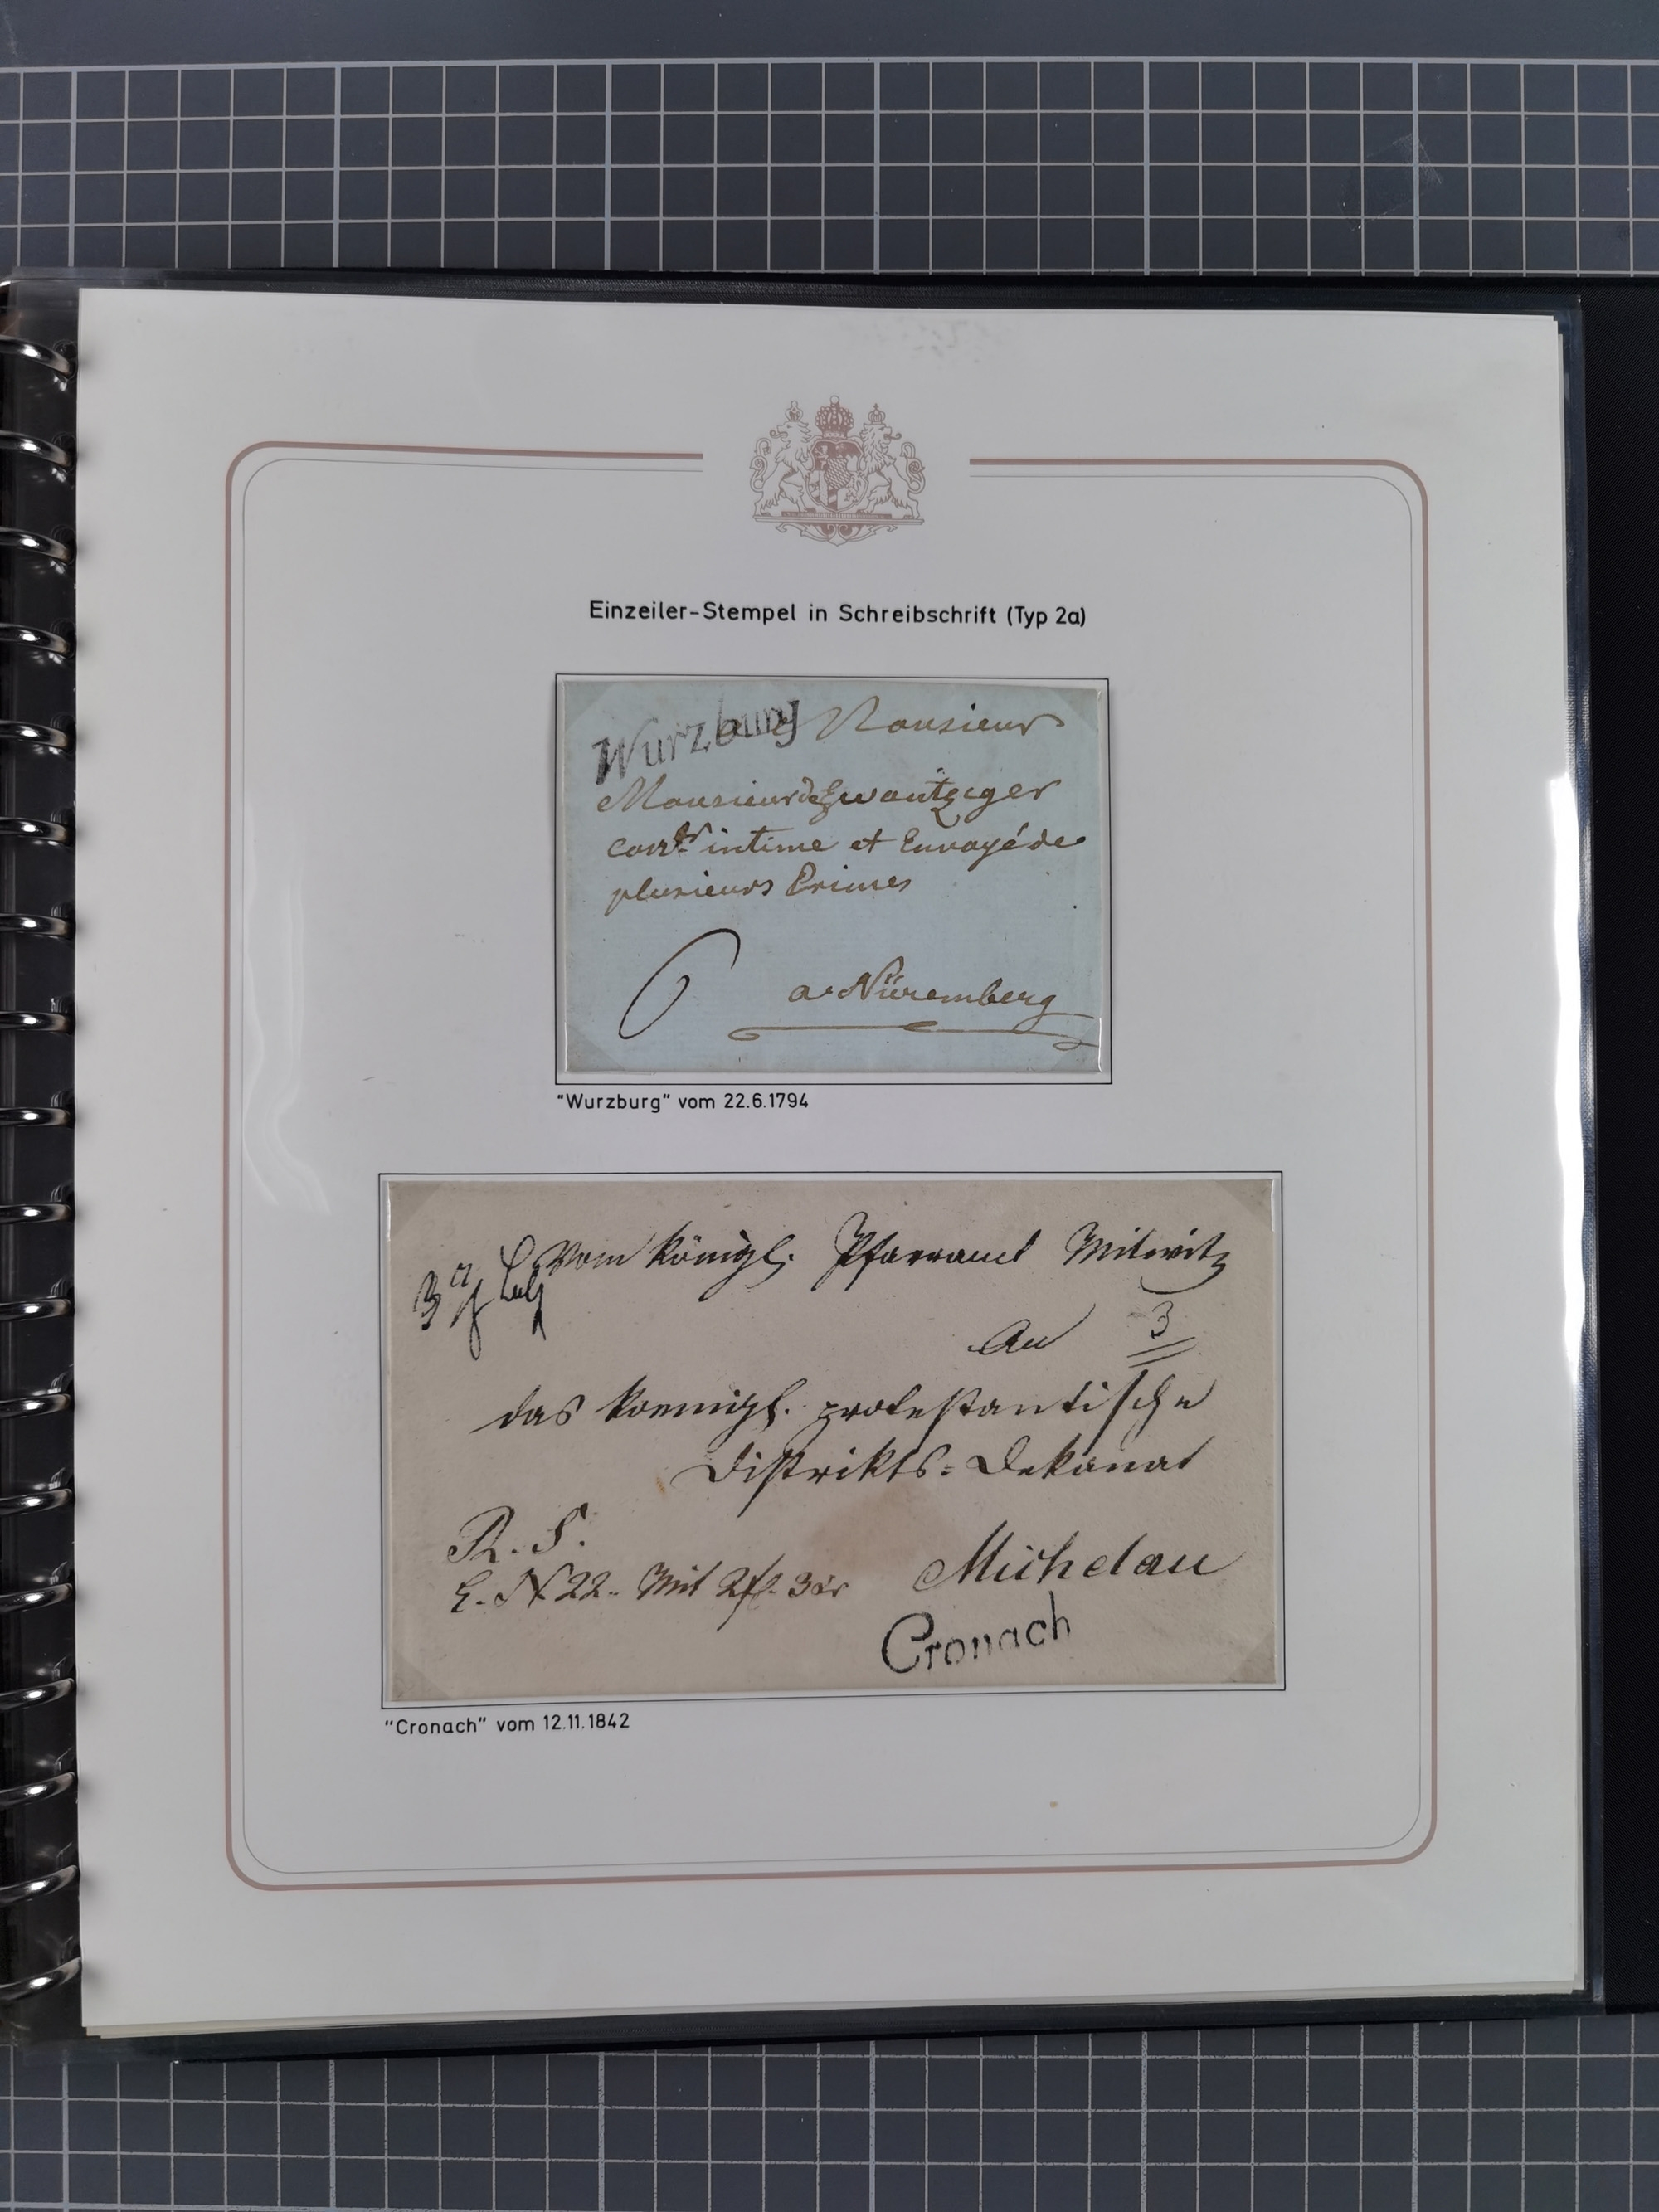 Einzeiler-Stempel in Schreibschrift (Typ 2a)
Wurzburg
a Monsieur
Monsieur de Zwantziger
intime et Envoyé de
plusieurs Princes
6
a Nüremberg
"Wurzburg" vom 22.6.1794
Vom Königl. Pfarramt Mitwitz
An 3
das koenigl. protestantische
Distrikts-Dekanat
R. S.
E. N 22. Mit 2 fl. 3 xr
Michelau
Cronach
"Cronach" vom 12.11.1842